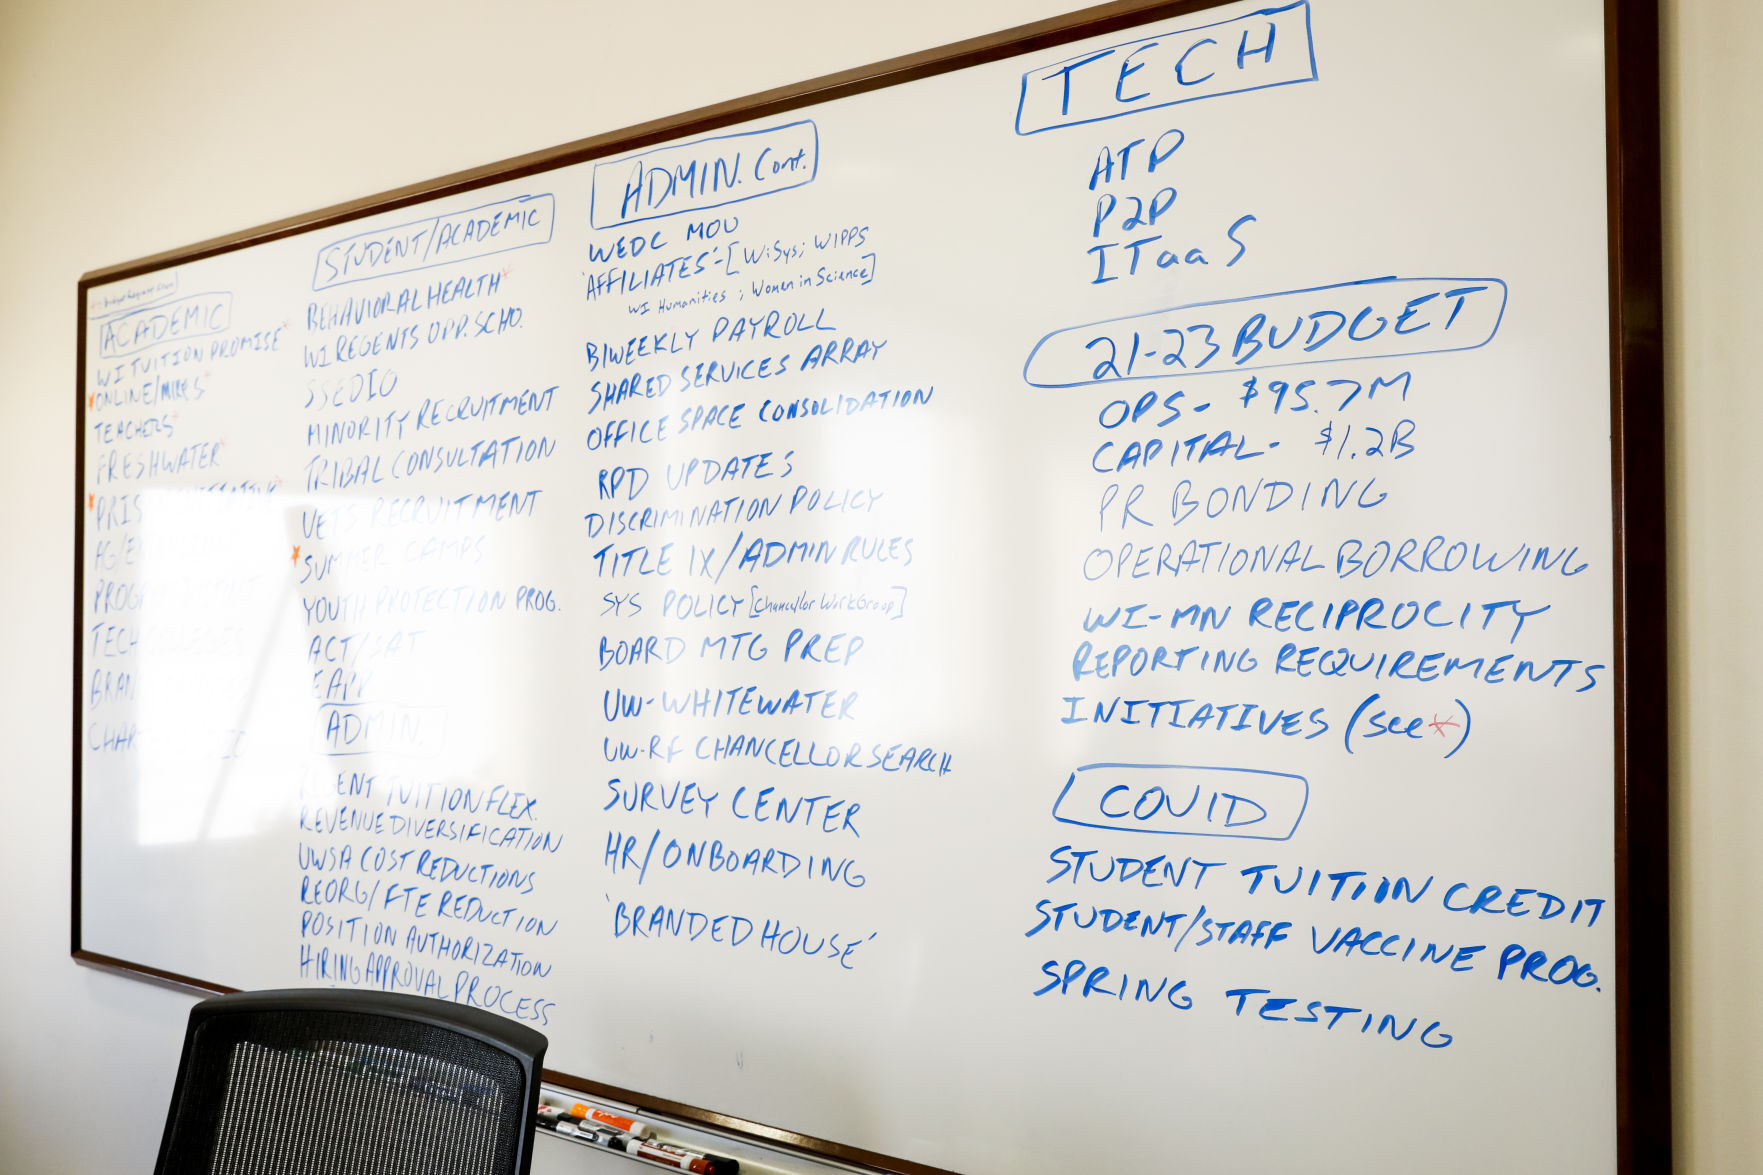 ACADEMIC
WI TUITION PROMISE*
*ONLINE/MKES*
TEACHERS*
FRESHWATER*
TECH COLLEGES
STUDENT/ACADEMIC
BEHAVIORAL HEALTH*
WI REGENTS OPP. SCHO.
SSEDIO
MINORITY RECRUITMENT
TRIBAL CONSULTATION
VETS RECRUITMENT
*SUMMER CAMPS
YOUTH PROTECTION PROG.
ACT/SAT
EAPP
ADMIN.
TUITION FLEX.
REVENUE DIVERSIFICATION
UWSA COST REDUCTIONS
REORG/FTE REDUCTION
POSITION AUTHORIZATION
HIRING APPROVAL PROCESS
ADMIN. Cont.
WEDC MOU
'AFFILIATES'-[WiSys; WIPPS
WI Humanities ; Women in Science]
BIWEEKLY PAYROLL
SHARED SERVICES ARRAY
OFFICE SPACE CONSOLIDATION
RPD UPDATES
DISCRIMINATION POLICY
TITLE IX/ADMIN RULES
SYS POLICY [Chancellor WorkGroup]
BOARD MTG PREP
UW-WHITEWATER
UW-RF CHANCELLOR SEARCH
SURVEY CENTER
HR/ONBOARDING
'BRANDED HOUSE'
TECH
ATP
P2P
ITaaS
21-23 BUDGET
OPS- $95.7M
CAPITAL- $1.2B
PR BONDING
OPERATIONAL BORROWING
WI-MN RECIPROCITY
REPORTING REQUIREMENTS
INITIATIVES (see *)
COVID
STUDENT TUITION CREDIT
STUDENT/STAFF VACCINE PROG.
SPRING TESTING